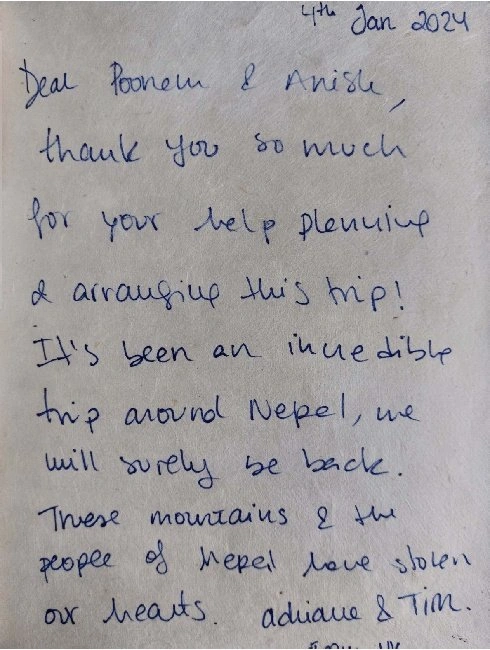 4th Jan 2024
Dear Poonam & Anish,
thank you so much
for your help planning
& arranging this trip!
It's been an incredible
trip around Nepal, we
will surely be back.
These mountains & the
people of Nepal have stolen
our hearts. Adriane & Tim.